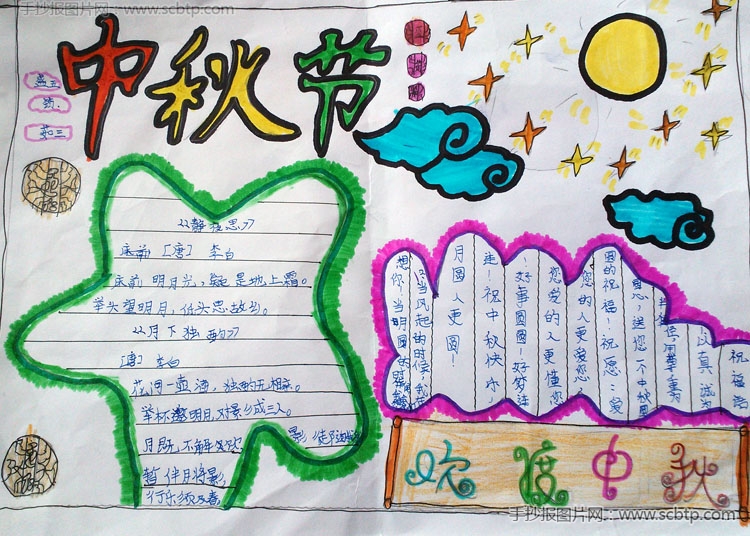 手抄报图片网：www.scbtp.com
中秋节
《静夜思》
床前 [唐] 李白
床前明月光，疑是地上霜。
举头望明月，低头思故乡。
《月下独酌》
[唐] 李白
花间一壶酒，独酌无相亲。
举杯邀明月，对影成三人。
月既不解饮
影徒随
暂伴月将影
行乐须及春
祝福语
以真诚为
圆的祝福！祝愿：爱
您的人更爱您
您爱的人更懂您
好事圆圆！好梦连
连！祝中秋快乐，
月圆人更圆！
当风起的时候
想你，当明月
欢度中秋
手抄报图片网：www.scbtp.com